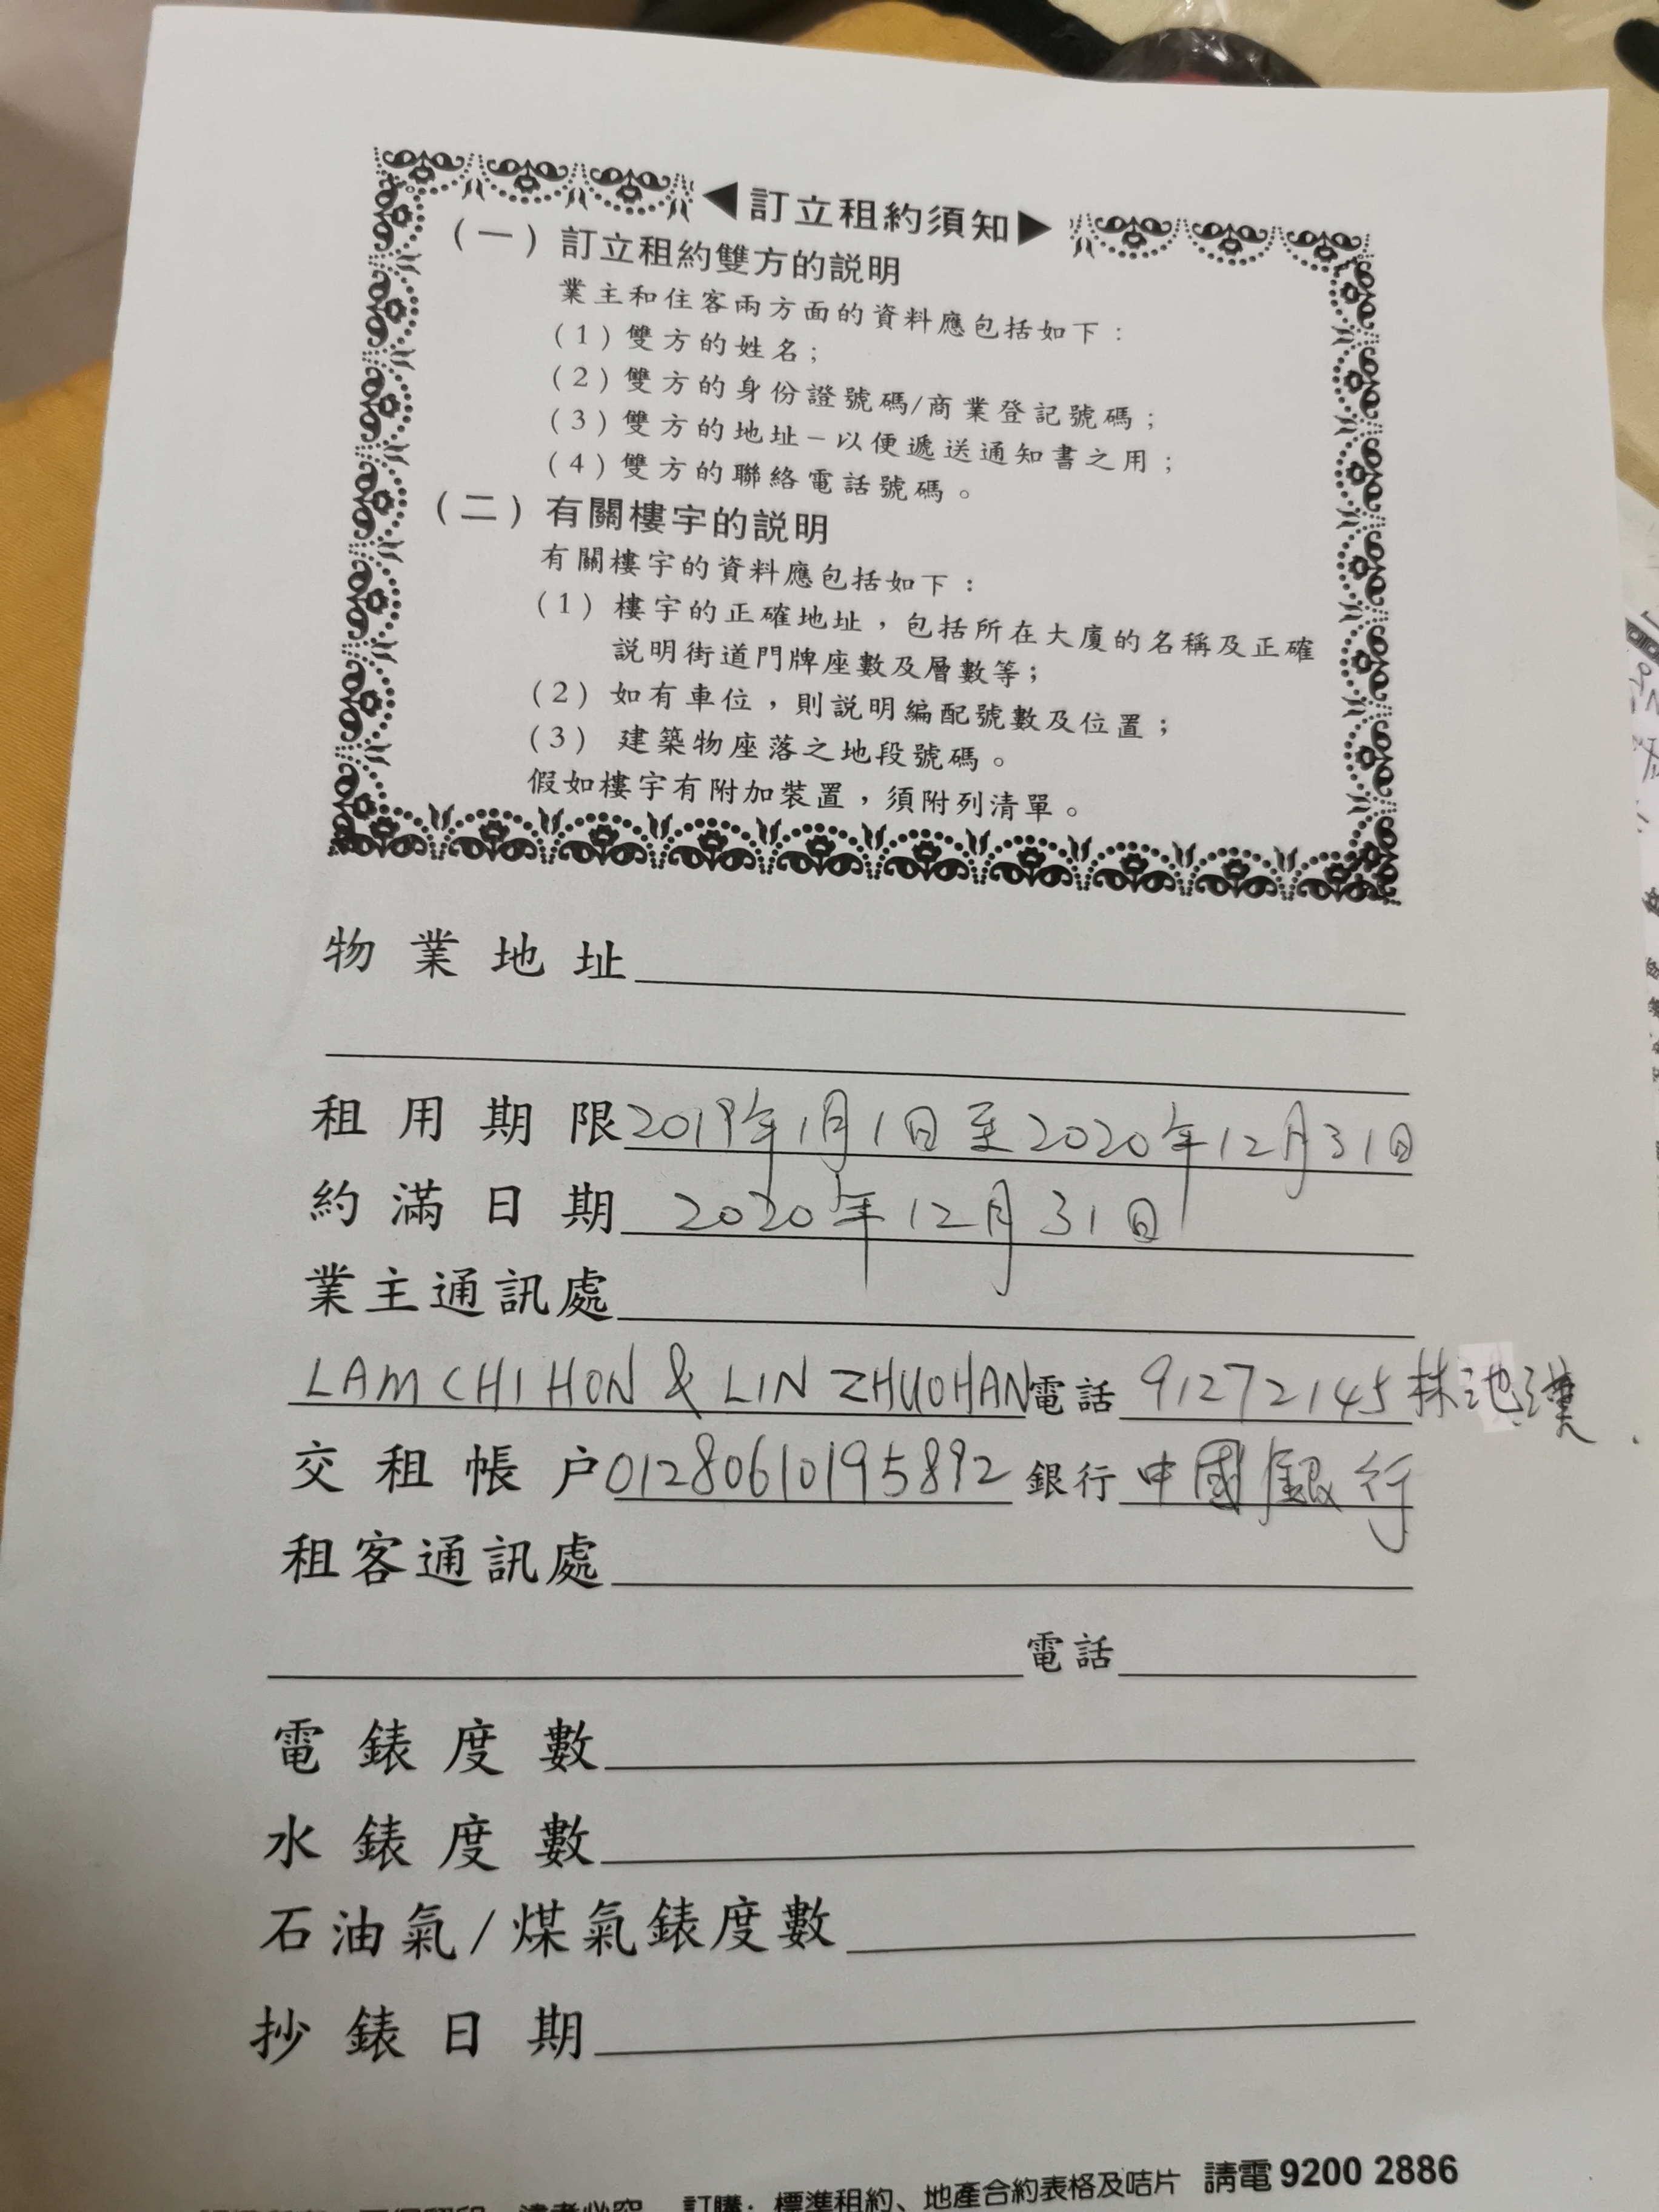 ◀訂立租約須知▶
(一)訂立租約雙方的説明
業主和住客兩方面的資料應包括如下：
(1)雙方的姓名；
(2)雙方的身份證號碼/商業登記號碼；
(3)雙方的地址－以便遞送通知書之用；
(4)雙方的聯絡電話號碼。
(二)有關樓宇的説明
有關樓宇的資料應包括如下：
(1)樓宇的正確地址，包括所在大廈的名稱及正確
説明街道門牌座數及層數等；
(2)如有車位，則説明編配號數及位置；
(3)建築物座落之地段號碼。
假如樓宇有附加裝置，須附列清單。
物業地址
租用期限2019年1月1日至2020年12月31日
約滿日期 2020年12月31日
業主通訊處
LAM CHI HON & LIN ZHUOHAN電話 91272145 林池漢
交租帳户01280610195892 銀行 中國銀行
租客通訊處
電話
電錶度數
水錶度數
石油氣/煤氣錶度數
抄錶日期
訂購：標準租約、地產合約表格及咭片 請電 9200 2886